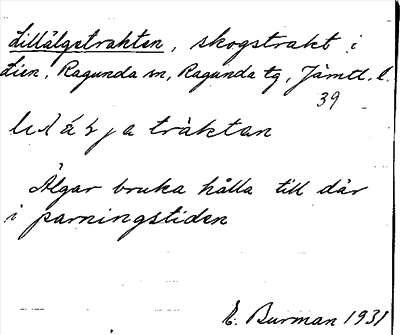 Lillälgstrakten, skogstrakt i
Lien, Ragunda sn, Ragunda tg, Jämtl. l.
39
tràktan
Älgar bruka hålla till där
i parningstiden
E. Burman 1931